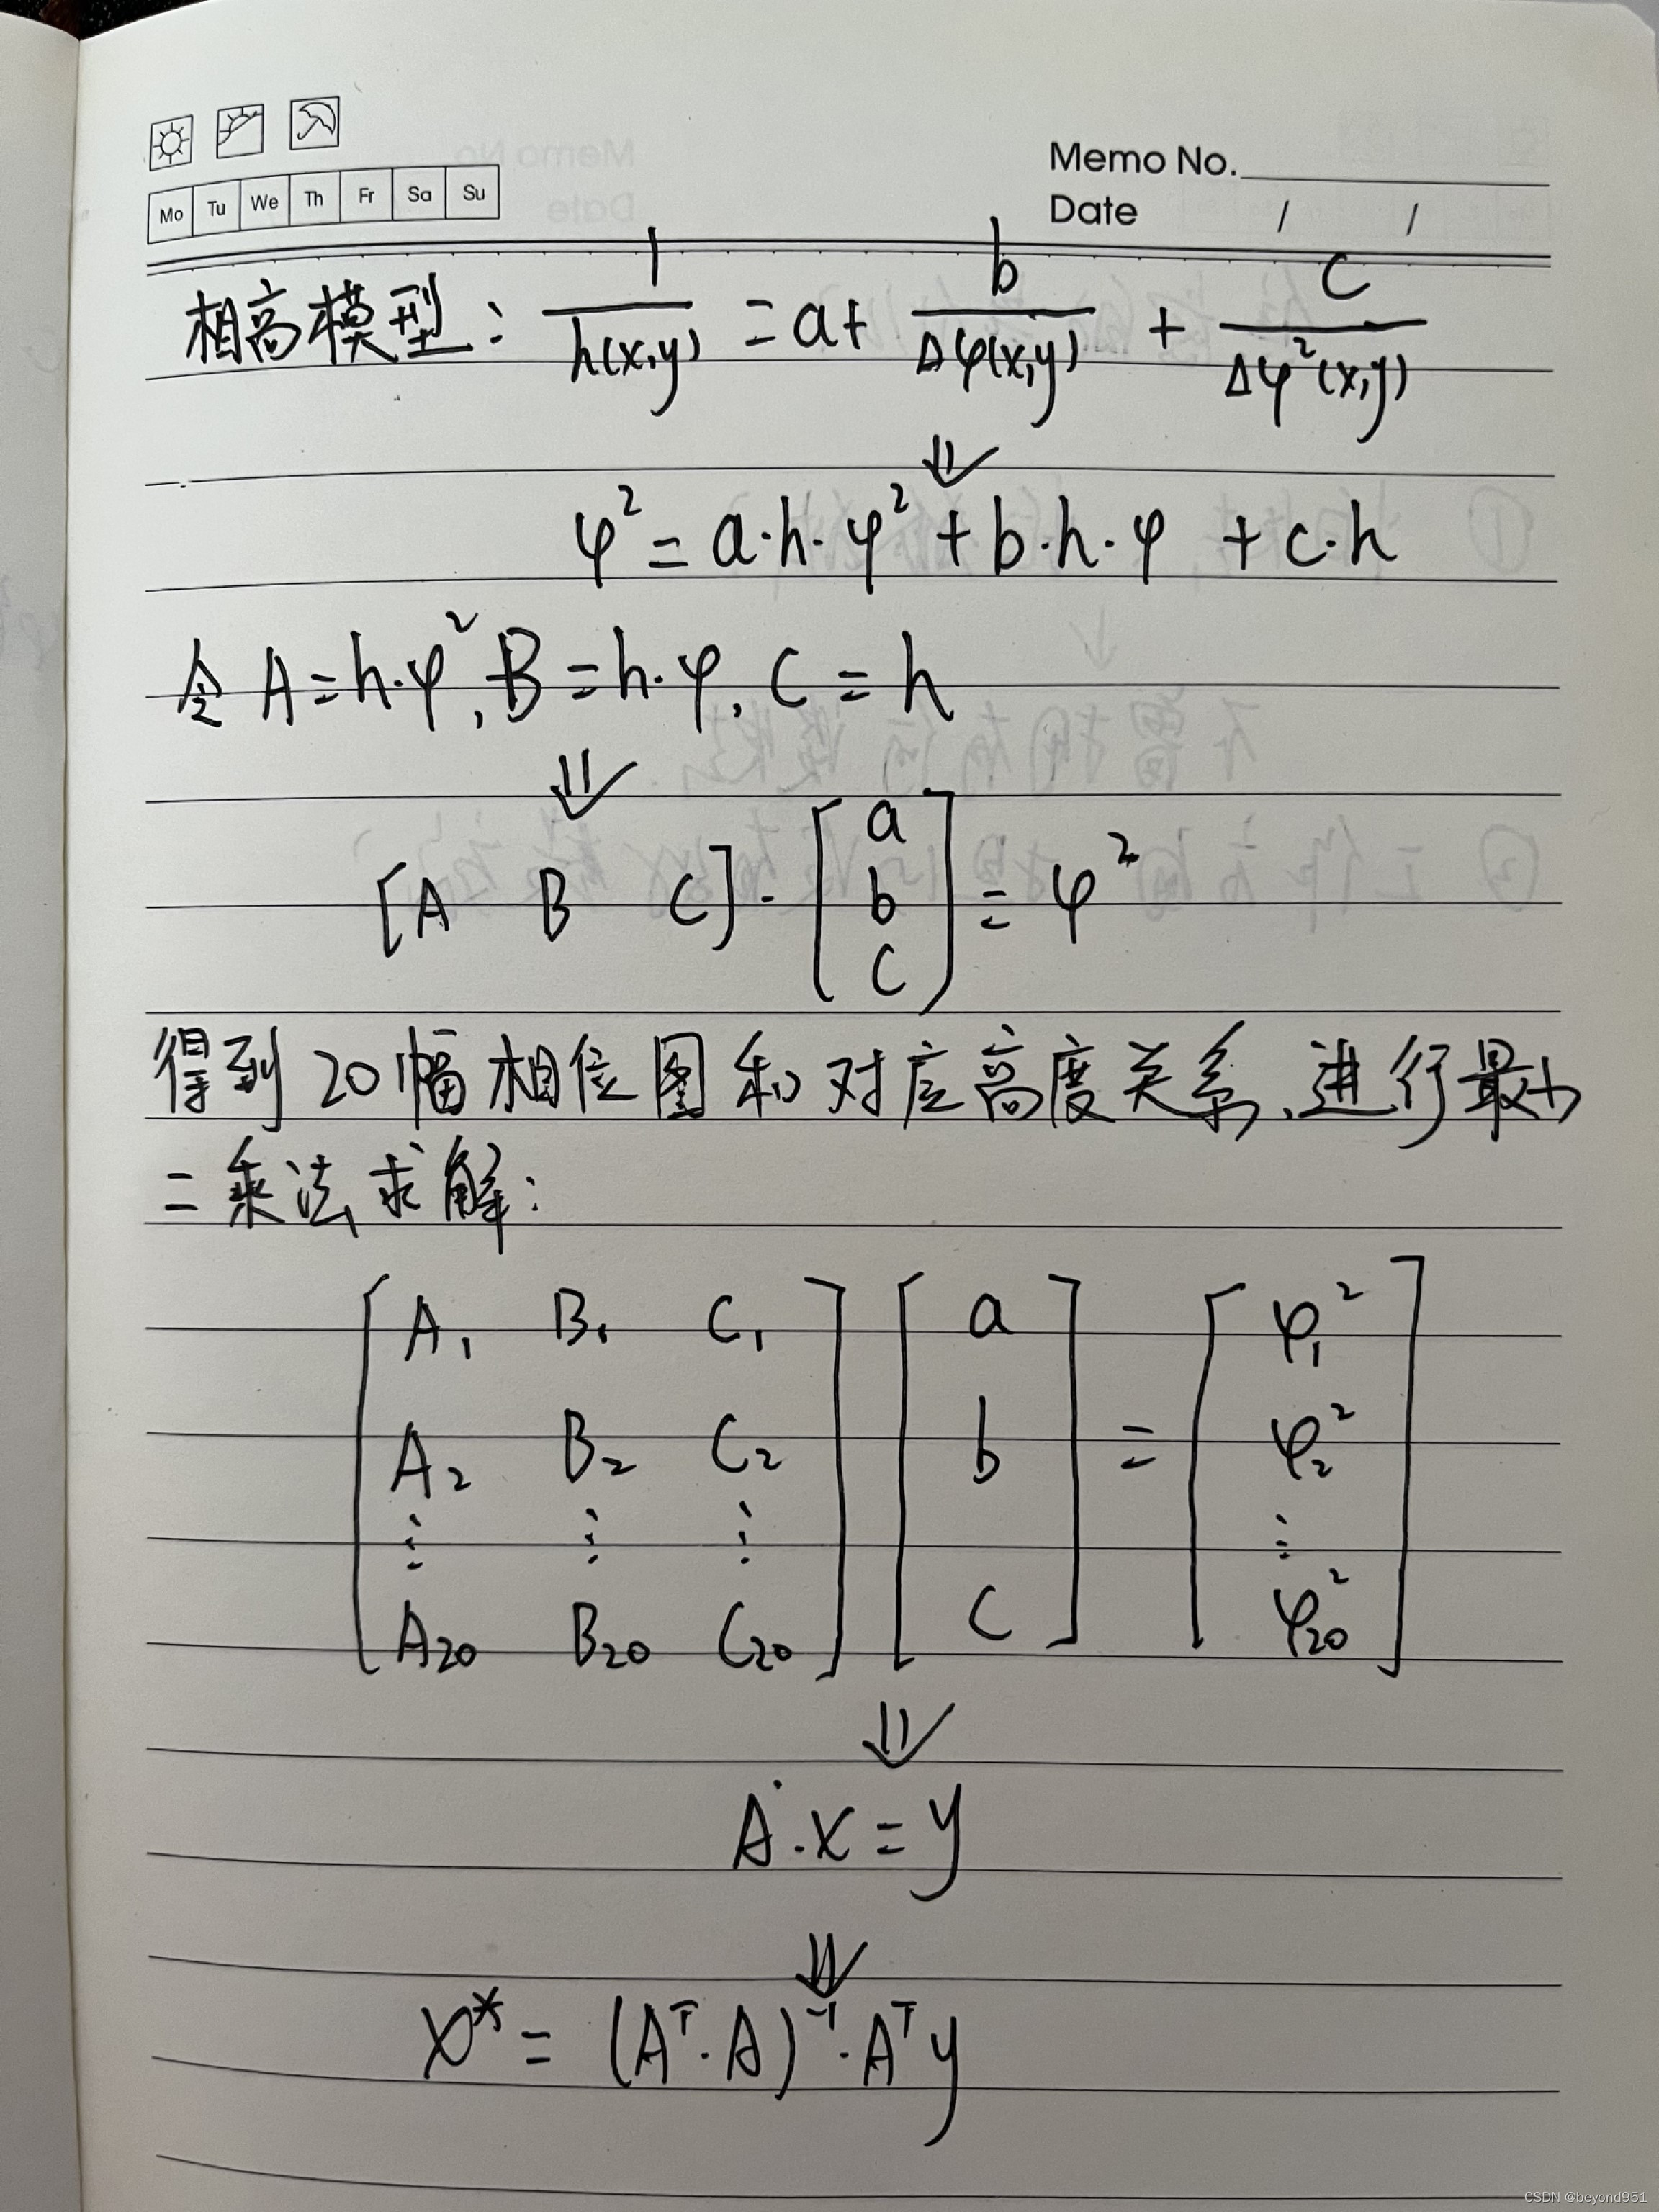 Memo No.
Mo Tu We Th Fr Sa Su
Date / /
相高模型: 1/h(x,y) = a + b/Δφ(x,y) + c/Δφ²(x,y)
⇓
φ² = a·h·φ² + b·h·φ + c·h
令 A=h·φ², B=h·φ, C=h
⇓
[A B C]·[a b c] = φ²
得到20幅相位图和对应高度关系,进行最小
二乘法求解:
A₁ B₁ C₁ a φ₁²
A₂ B₂ C₂ b = φ₂²
⋮ ⋮ ⋮ ⋮
A₂₀ B₂₀ C₂₀ c φ₂₀²
⇓
A·x=y
⇓
x* = (Aᵀ·A)⁻¹·Aᵀy
CSDN @beyond951